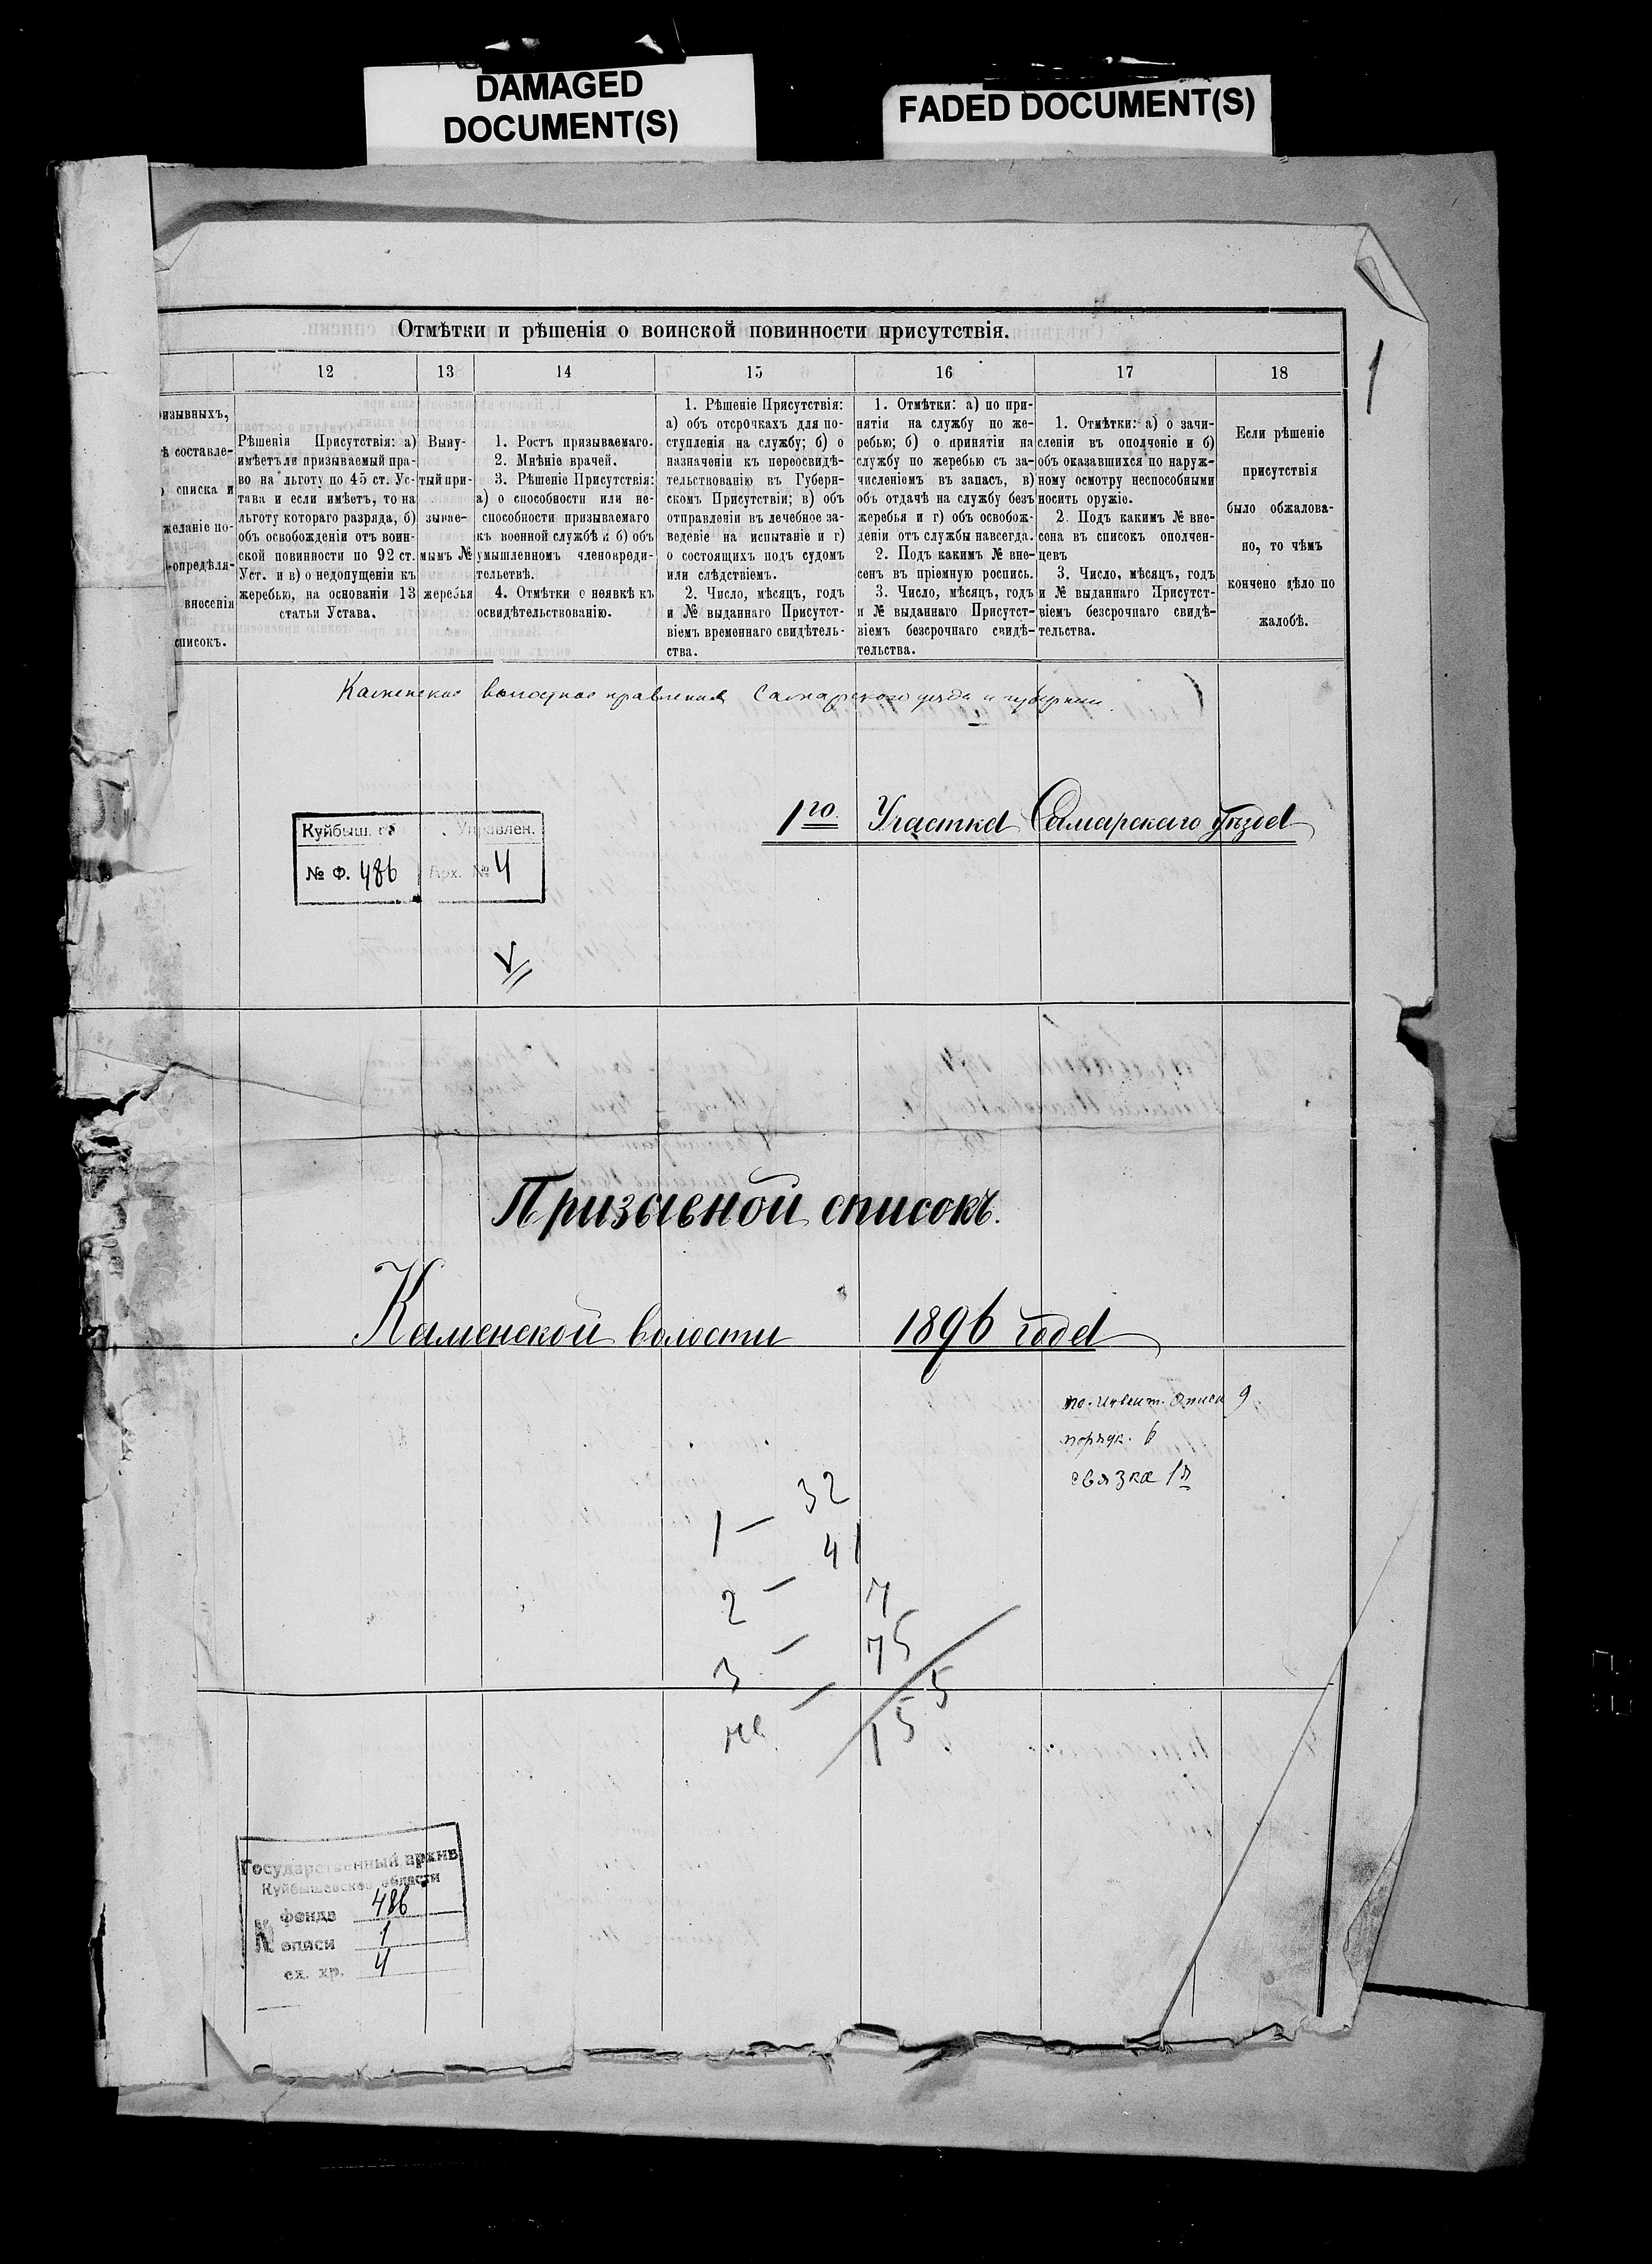 DAMAGED
DOCUMENT(S)
FADED DOCUMENT(S)
1
Отмѣтки и рѣшенія о воинской повинности присутствія.
12 13 14 15 16 17 18
изывныхъ,
составле-
списка и
желаніе по-
опредѣля-
внесенія
списокъ.
Рѣшенія Присутствія: а)
имѣетъ ли призываемый пра-
во на льготу по 45 ст. Ус-
тава и если имѣетъ, то на
льготу котораго разряда, б)
объ освобожденіи отъ воин-
ской повинности по 92 ст.
Уст. и в) о недопущеніи къ
жеребью, на основаніи 13
статьи Устава.
Выну-
тый при-
зывае-
мымъ №
жеребья
1. Ростъ призываемаго.
2. Мнѣніе врачей.
3. Рѣшеніе Присутствія:
а) о способности или не-
способности призываемаго
къ военной службѣ и б) объ
умышленномъ членовреди-
тельствѣ.
4. Отмѣтки о неявкѣ къ
освидѣтельствованію.
1. Рѣшеніе Присутствія:
а) объ отсрочкахъ для по-
ступленія на службу; б) о
назначеніи къ переосвидѣ-
тельствованію въ Губерн-
скомъ Присутствіи; в) объ
отправленіи въ лечебное за-
веденіе на испытаніе и г)
о состоящихъ подъ судомъ
или слѣдствіемъ.
2. Число, мѣсяцъ, годъ
и № выданнаго Присутст-
віемъ временнаго свидѣтель-
ства.
1. Отмѣтки: а) по при-
нятіи на службу по же-
ребью; б) о принятіи на
службу по жеребью съ за-
численіемъ въ запасъ, в)
объ отдачѣ на службу безъ
жеребья и г) объ освобож-
деніи отъ службы навсегда.
2. Подъ какимъ № вне-
сенъ въ пріемную роспись.
3. Число, мѣсяцъ, годъ
и № выданнаго Присутст-
віемъ безсрочнаго свидѣ-
тельства.
1. Отмѣтки: а) о зачи-
сленіи въ ополченіе и б)
объ оказавшихся по наруж-
ному осмотру неспособными
носить оружіе.
2. Подъ какимъ № вне-
сена въ списокъ ополчен-
цевъ
3. Число, мѣсяцъ, годъ
и № выданнаго Присутст-
віемъ безсрочнаго свидѣ-
тельства.
Если рѣшеніе
присутствія
было обжалова-
но, то чѣмъ
кончено дѣло по
жалобѣ.
Каменское волостное правление Самарского уезда и губернии.
1го Участка Самарскаго Уѣзда
Куйбыш. Управлен.
№ Ф. 486 Арх. № 4
Призывной списокъ.
Каменской волости 1896 года
по инвент. описи 9.
порядк. 6
связка 1я
1 — 32
2 — 41
3 — 7
не — 75
155
Государственный архив
Куйбышевской области
№ фонда 486
описи 1
ед. хр. 4